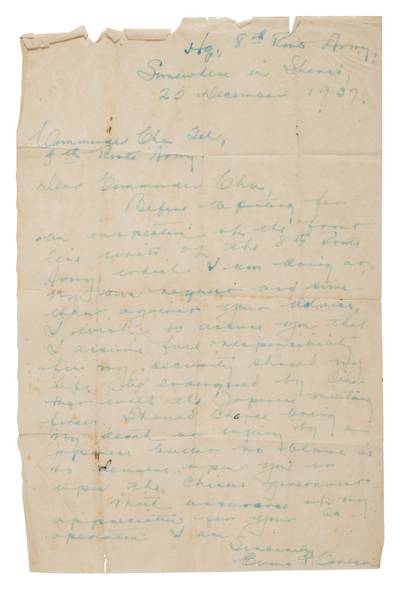 Hq, 8th Route Army,
Somewhere in Shansi,
20 December 1937.
Commander Chu Teh,
8th Route Army.
Dear Commander Chu,
Before departing for
an inspection of the front
line units of the 8th Route
Army, which I am doing at
my own request and
against your advice,
I desire to assure you that
I assume full responsibility
for my security should my
life be endangered by
with the Japanese military
forces. Should chance bring
my death or injury by a
Japanese bullet no blame is
to upon you or
upon the Chinese government.
With assurance of my
appreciation for your co
operation I am
Sincerely
Evans F. Carlson